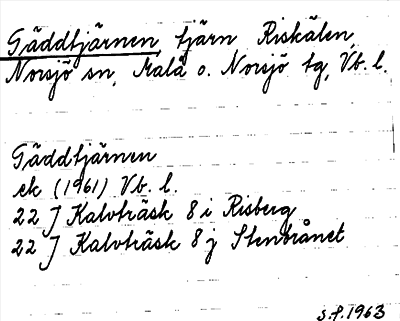 Gäddtjärnen, tjärn Riskälen,
Norsjö sn, Malå o. Norsjö tg, Vb. l.
Gäddtjärnen
ek (1961) Vb. l.
22 J Kalvträsk 8 i Risberg
22 J Kalvträsk 8 j Stenbrånet
s.f. 1963